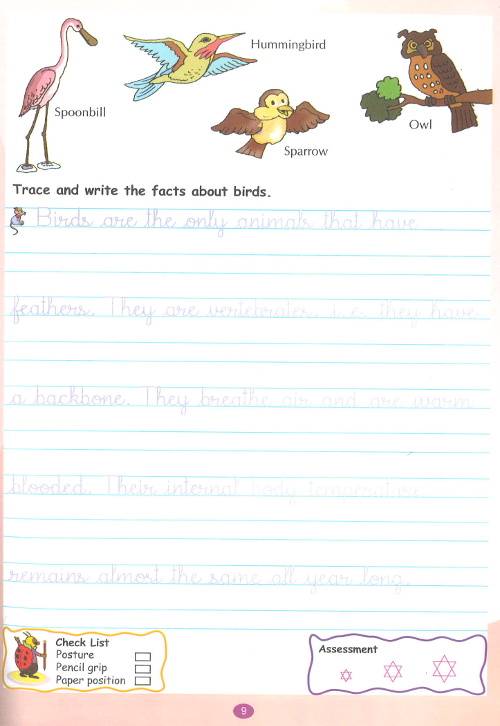 Hummingbird
Spoonbill
Owl
Sparrow
Trace and write the facts about birds.
Birds are the only animals that have
feathers. They are vertebrates, i.e. they have
a backbone. They breathe air and are warm
blooded. Their internal body temperature
remains almost the same all year long.
Check List
Posture
Pencil grip
Paper position
Assessment
9